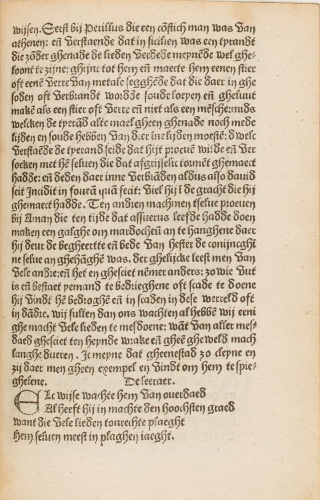 wijsen. Eerst bij Perillus die een cōstich man was van
athenen: eñ verstaende dat in sicilien was een tyrandt
die zōder ghenade de lieden verdede meynēde wel ghe-
loont te zijne: ghinc tot hem eñ maecte hem eenen stier
oft eene verre van metale segghēde dat die daer in ghe
soden oft verbrandt wordē soude loeyen eñ gheluut
makē als een stier oft verre eñ niet als een mēsche: mids
welcken de tyrād alte mael gheen ghenade noch mede
lijden en soude hebben van dier int lijden moeste: dwelc
verstaēde de tyerand seide dat hijt proeuē wilde eñ ver
soeken met hē seluen die dat afgrijselic tormēt ghemaect
hadde: eñ deden daer inne verbiādē aldus also dauid
seit Incidit in foueā quā fecit: viel hij ī de gracht die hij
ghemaect hadde. Ten andren machmen tselue proeuen
bij Aman die ten tijde dat assuerus leefde hadde doen
maken een galghe om mardocheū an te hanghene daer
hij deur de begheertte eñ bede van hester de conijncghī
ne selue an ghehāghē was. der ghelijcke leest men van
vele andrē: eñ het en ghesciet nēmer anders: zo wie vut
is eñ bestaet yemand te bedrieghene oft scade te doene
hij vindt hē bedroghē eñ in scaden in dese werelt oft
in dādre. wij sullen dan ons wachten al hebbē wij eeni
ghe macht vele lieden te mesdoene: wāt van aller mes-
daed ghesciet ten heynde wrake eñ gheē ghewelt mach
langhe dueren. Ic meyne dat gheenstad zo cleyne en
zij daer men gheen exempel en vindt om hem te spie-
ghelene. De leeraer.
Elc wijse wachte hem van ouerdaed
Al heeft hij in machte den hoochsten graed
want die vele lieden tonrechte plaeght
hem seluen meest in plaghen iaeght.